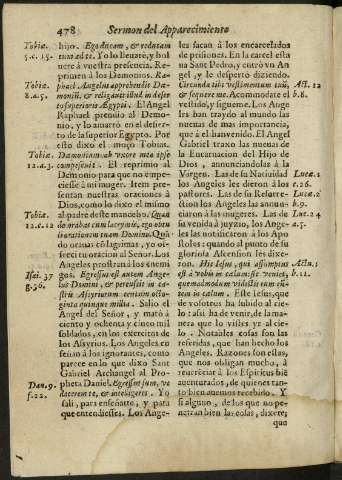 478 Sermon del Apparecimiento
Tobiæ. hijo. Ego ducam, & reducam
5.c.15. eum ad te. Yo lo lleuarè, y bol
uere à vuestra presencia. Re-
primen à los Demonios. Ra-
Tobiæ. phael Angelus apprehendit Dæ-
8.a.5. monium, & religauit illud in deser
to superioris Ægypti. El Angel
Raphael prendio al Demo-
nio, y lo amarrò en el desier-
to de la superior Egypto. Por
esto dixo el moço Tobias.
Tobiæ. Dæmonium ab uxore mea ipse
12.a.3. compescuit. El reprimio al
Demonio para que no empe-
ciesse à mi muger. Item pre-
sentan nuestras oraciones à
Dios, como lo dixo el mismo
Tobiæ. al padre deste mancebo. Quan
12.c.12 do orabas cum lacrymis, ego obtu
li orationem tuam Domino. Quã
do orauas cõ lagrimas, yo of-
recì tu oracion al Señor. Los
Angeles prostrarã à los enemi
Isai. 37 gos. Egressus est autem Ange-
g.36. lus Domini, & percussit in ca-
stris Assyriorum centum octo-
ginta quinque millia. Saliò el
Angel del Señor, y matò à
ciento y ochenta y cinco mil
soldados, en los exercitos de
los Assyrios. Los Angeles en
señan à los ignorantes, como
parece en lo que dixo San
Gabriel Archangel al Pro-
Dan. 9. pheta Daniel. Egressus sum, vt
f.22. docerem te, & intelligeres. Yo
salì, para enseñarte, y para
que entendiesses. Los Ange-
les sacan à los encarcelados
de prisiones. En la carcel esta
ua Sant Pedro, y entrò vn An
gel, y le despertò diziendo.
Circunda tibi vestimentum tuũ, Act. 12
& sequere me. Accommodate el b.8.
vestido, y sigueme. Los Ange
les han traydo al mundo las
nueuas de mas importancia,
que à el han venido. El Angel
Gabriel traxo las nueuas de
la Encarnacion del Hijo de
Dios, anunciandolas à la
Virgen. Las de su Natiuidad Luc. 1
los Angeles les dieron à los c.26.
pastores. Las de su Resurre- Luc. 2
ction los Angeles las annun- b.8.
ciaron à las mugeres. Las de Luc. 24
su venida à juyzio, los Ange- a.5.
les las notificaron à los Apo
stoles: quando al punto de su
gloriosa Ascension les dixe-
ron. Hic Iesus, qui assumptus Act. 1
est à vobis in cælum: sic veniet, b.11.
quemadmodum vidistis eum eũ-
tem in cælum. Este Iesus, que
de vosotros ha subido al cie-
lo: assi ha de venir, de la ma-
nera que lo vistes yr al cie-
lo. Notables cosas son las
referidas, que han hecho los
Angeles. Razones son estas,
que nos obligan mucho, à
reuerenciar à los Espiritus bie
auenturados, de quienes tan-
to bien auemos recebido. Y
si alguno, de los que no pe-
netran bien las cosas, dixere;
que